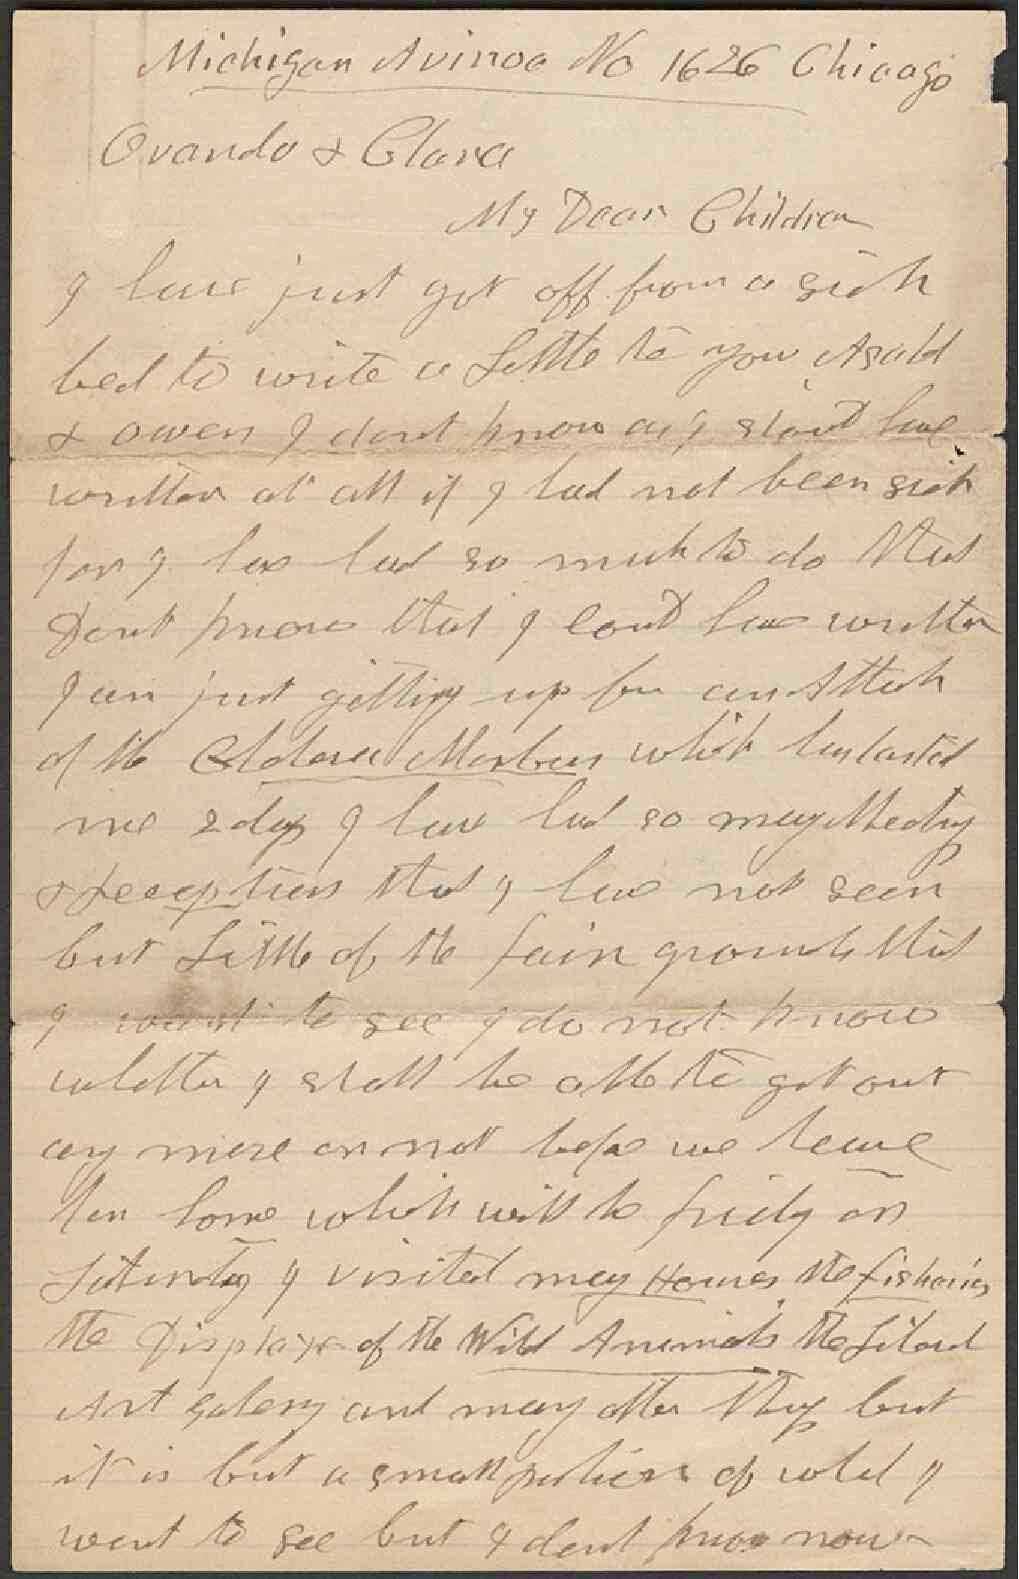 Michigan Avinoe No 1626 Chicago
Ovando & Clara
My Dear Children
I have just got off from a sick
bed to write a Little to you Asald
& Owen I dont know as I shoud have
written at all if I had not been sick
for I hav had so much to do that
Dont know that I coud have written
I am just getting up for an Attack
of the Cholera Morbus which has lasted
me 2 days I have had so many Meeting
& receptions that I have not seen
but Little of the fair grounds that
I want to see I do not know
whether I shall be able to get out
any more or not before we leave
for home which will be friday or
Saturday I visited many Houses the fisheries
the Displays of the Wild Animals the
Art galery and many other things but
it is but a small portion of what I
want to see but I dont know now